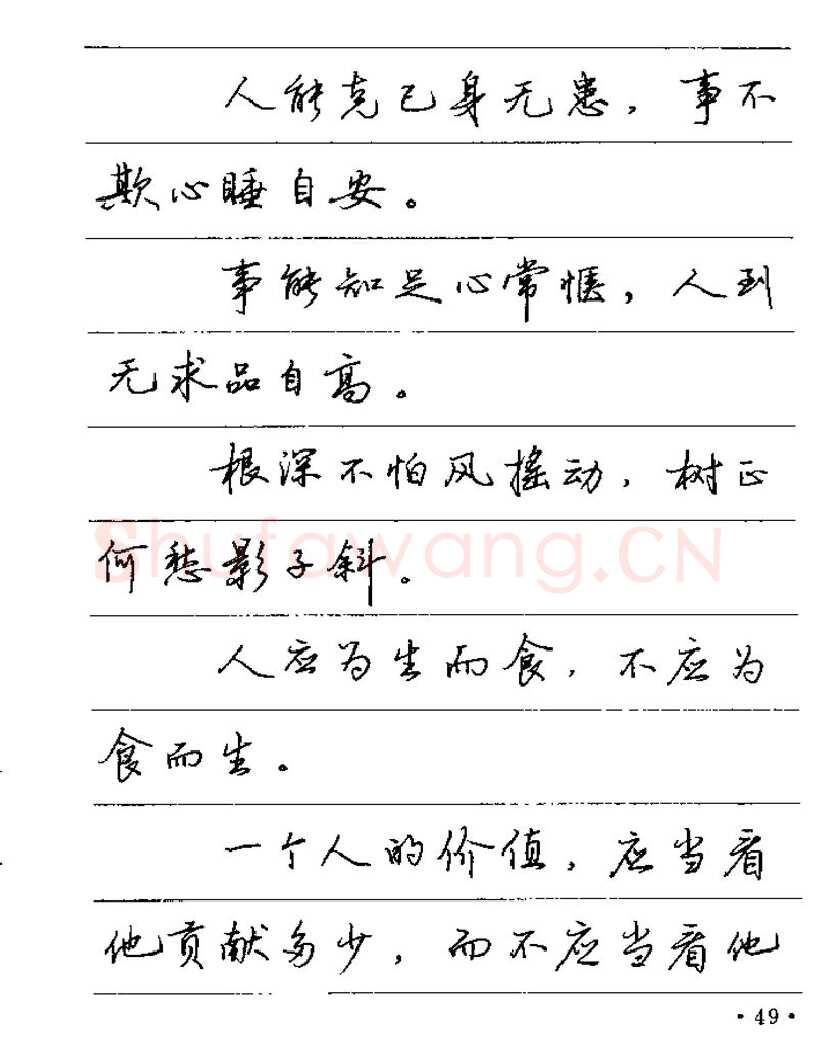 人能克己身无患，事不
欺心睡自安。
事能知足心常惬，人到
无求品自高。
根深不怕风摇动，树正
何愁影子斜。
Shufawang.CN
人应为生而食，不应为
食而生。
一个人的价值，应当看
他贡献多少，而不应当看他
·49·